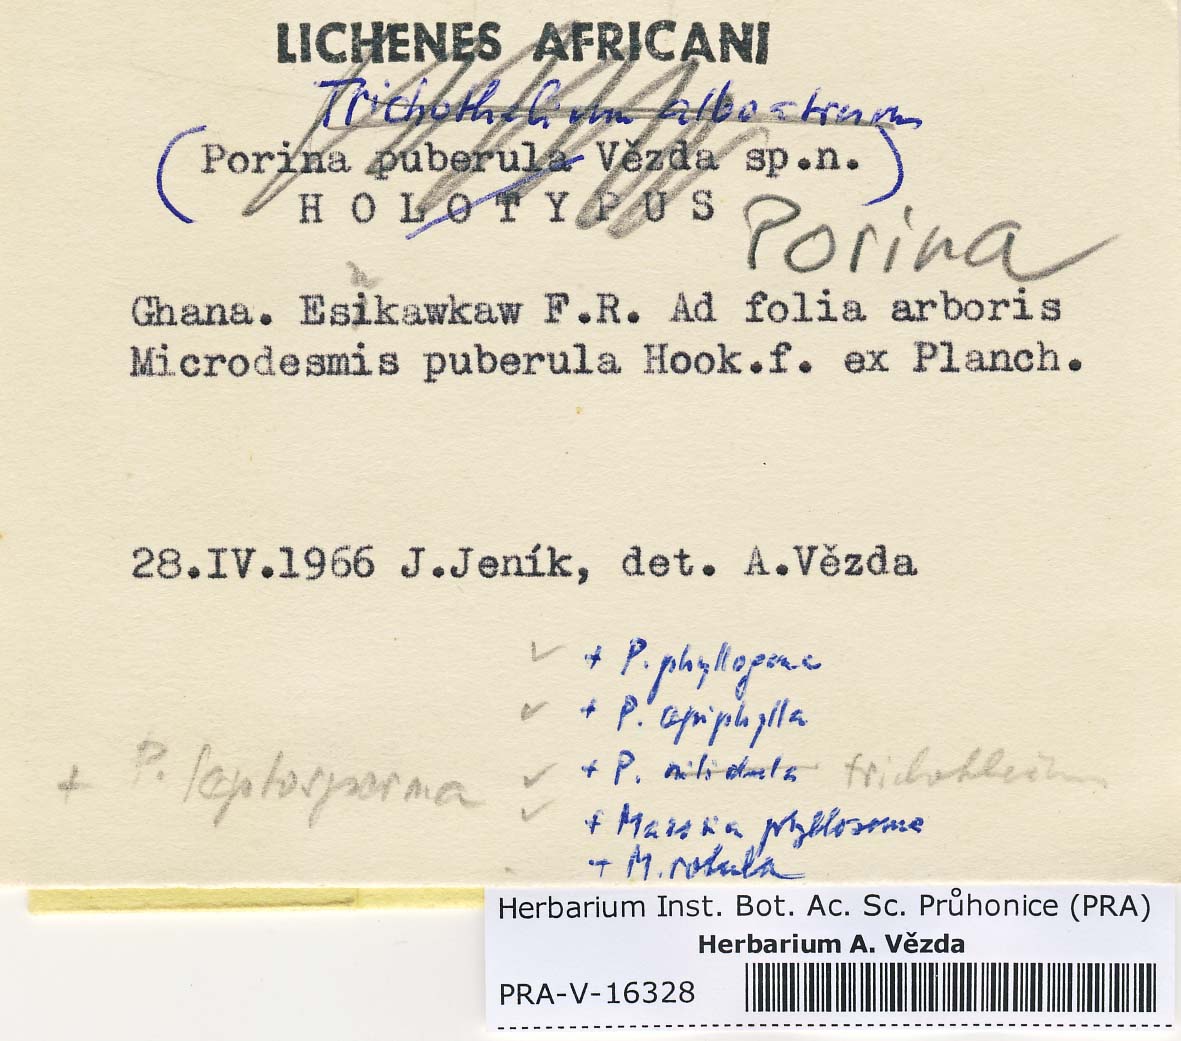 LICHENES AFRICANI
Trichothelium alboatrum
(Porina puberula Vězda sp.n.)
HOLOTYPUS
Porina
n
Ghana. Esikawkaw F.R. Ad folia arboris
Microdesmis puberula Hook.f. ex Planch.
28.IV.1966 J.Jeník, det. A.Vězda
✓ + P. phyllogena
✓ + P. epiphylla
+ P. leptosperma ✓ + P. nitidula
✓ + Mazosia phyllosema
+ M. rotula
Herbarium Inst. Bot. Ac. Sc. Průhonice (PRA)
Herbarium A. Vězda
PRA-V-16328